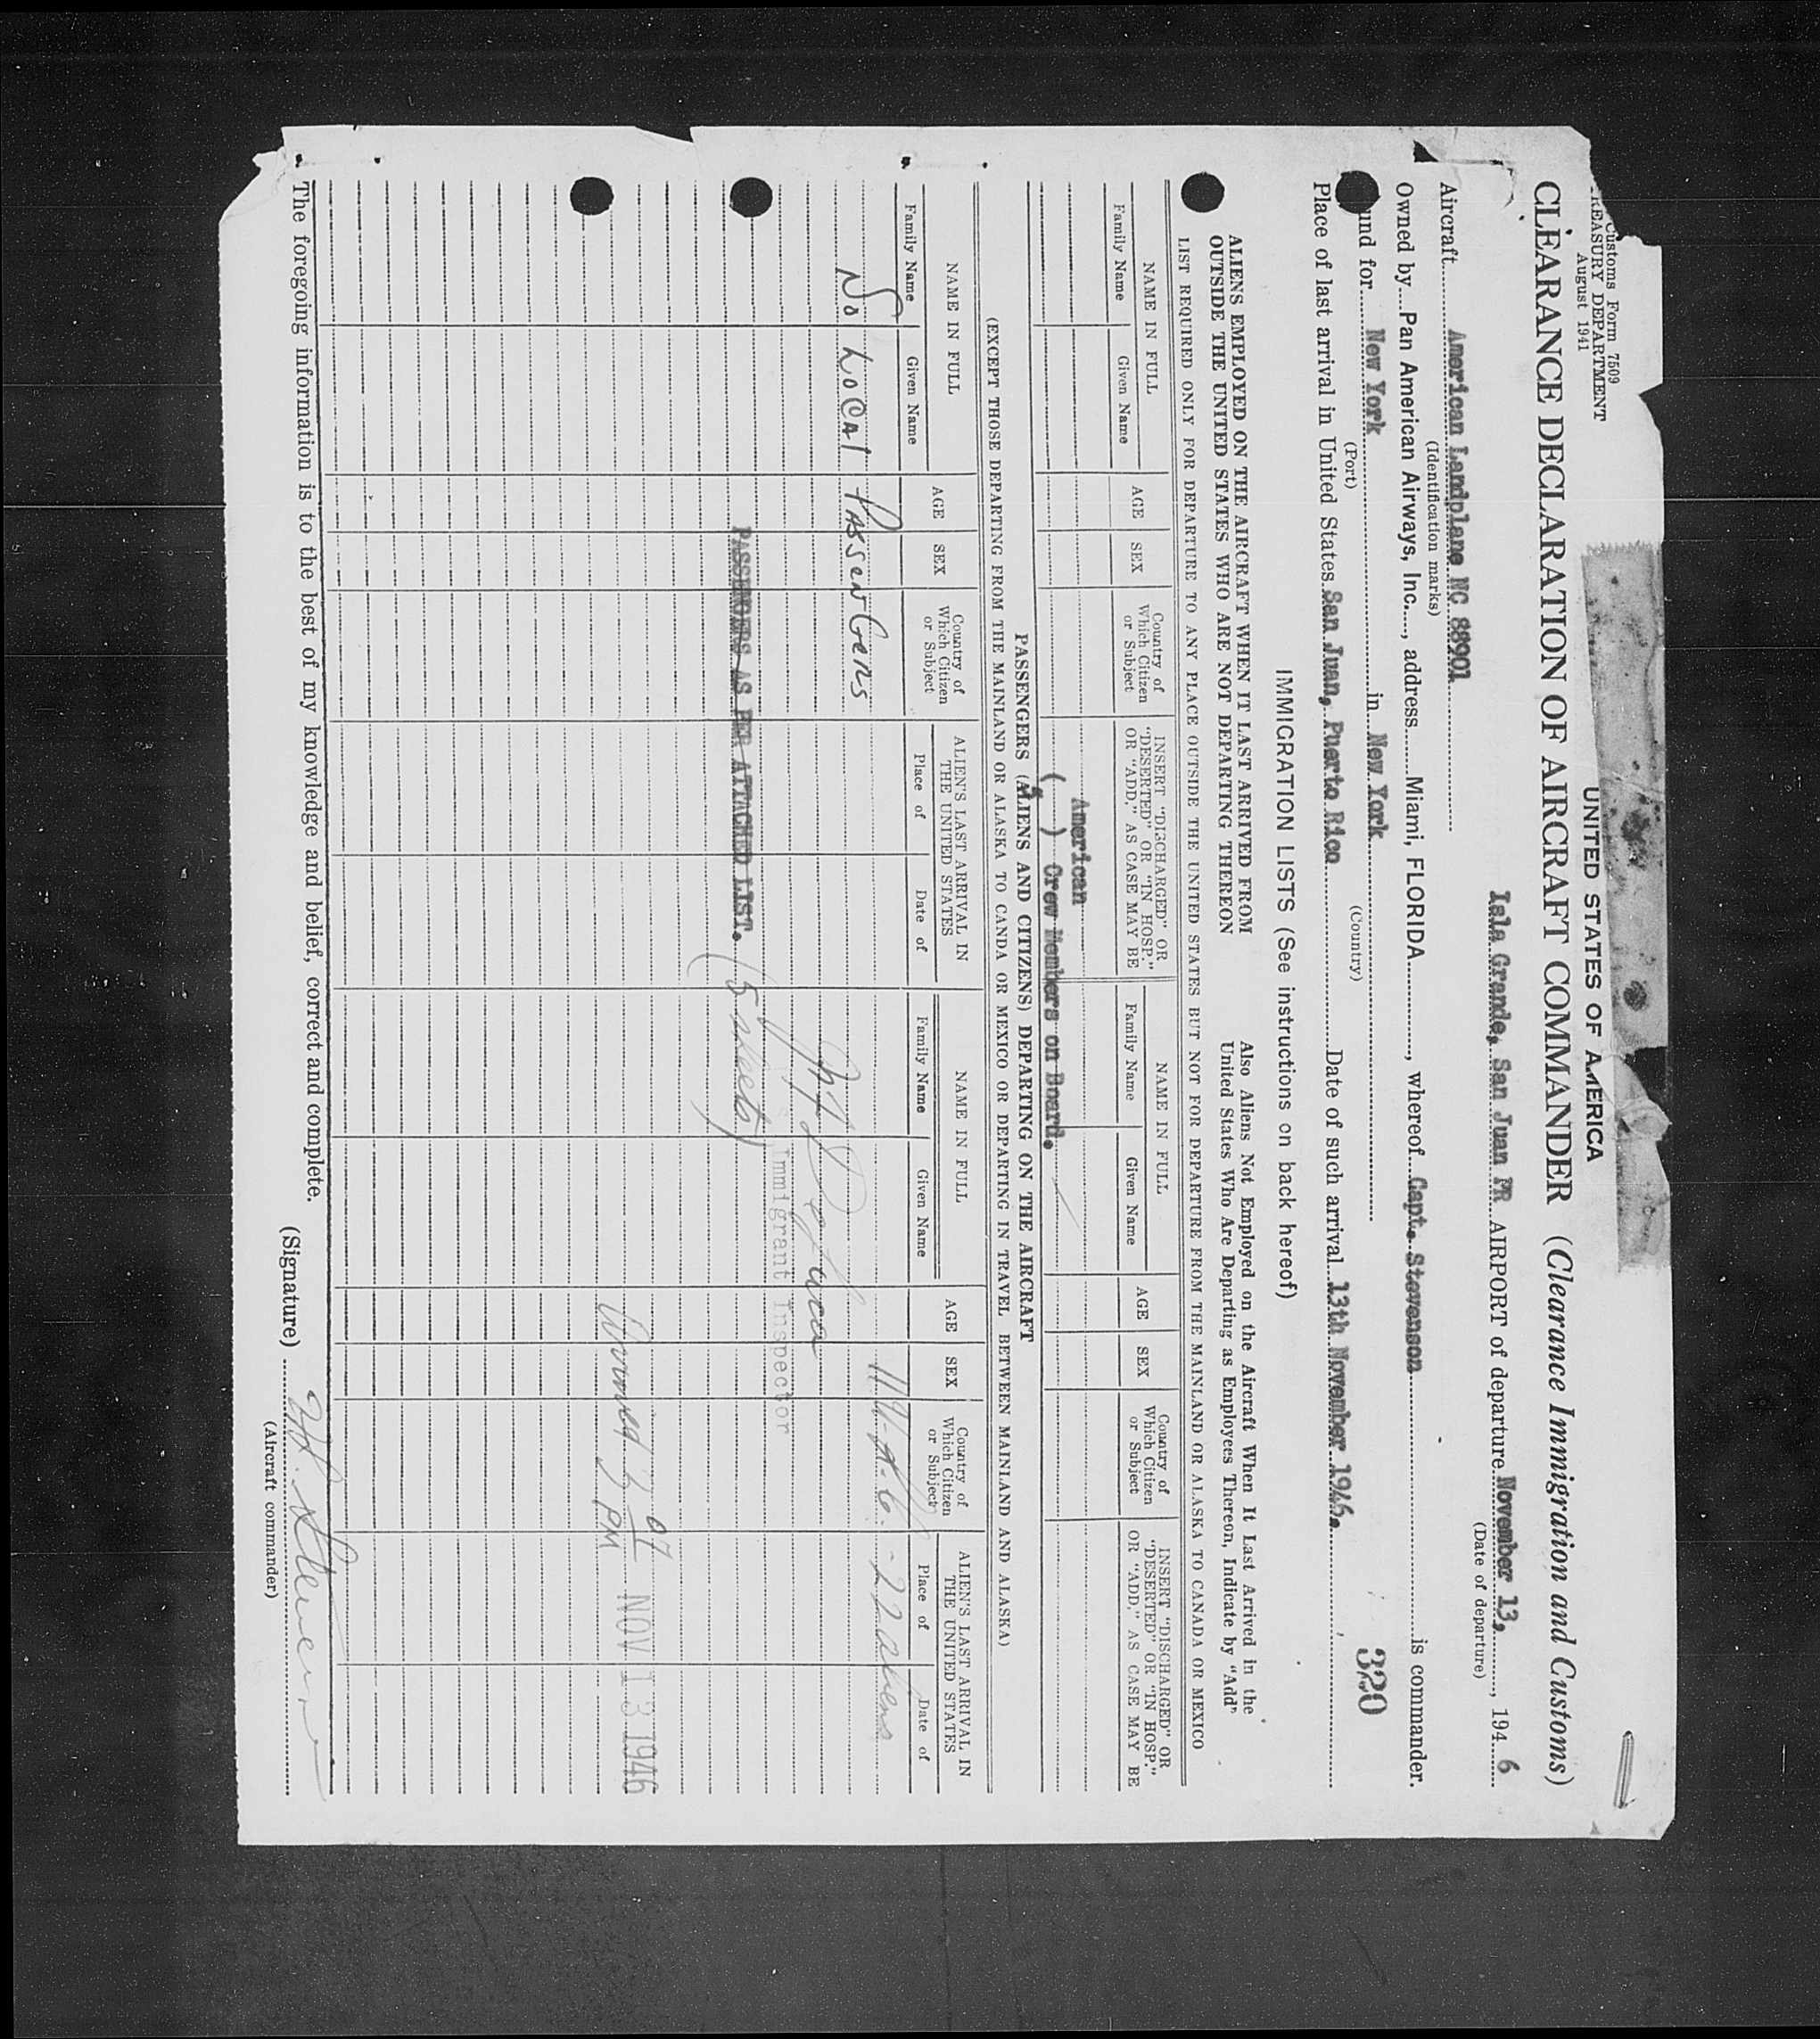 Customs Form 7509
TREASURY DEPARTMENT
August 1941
UNITED STATES OF AMERICA
CLEARANCE DECLARATION OF AIRCRAFT COMMANDER (Clearance Immigration and Customs)
Isla Grande, San Juan PR AIRPORT of departure November 13, 194 6
(Date of departure)
Aircraft American Landplane NC 88901
(Identification marks)
Owned by Pan American Airways, Inc., address Miami, FLORIDA, whereof Capt. Stevenson is commander.
und for New York in New York
(Port) (Country)
320
Place of last arrival in United States San Juan, Puerto Rico Date of such arrival 13th November 1946.
IMMIGRATION LISTS (See instructions on back hereof)
ALIENS EMPLOYED ON THE AIRCRAFT WHEN IT LAST ARRIVED FROM
OUTSIDE THE UNITED STATES WHO ARE NOT DEPARTING THEREON
Also Aliens Not Employed on the Aircraft When It Last Arrived in the
United States Who Are Departing as Employees Thereon, Indicate by "Add"
LIST REQUIRED ONLY FOR DEPARTURE TO ANY PLACE OUTSIDE THE UNITED STATES BUT NOT FOR DEPARTURE FROM THE MAINLAND OR ALASKA TO CANADA OR MEXICO
NAME IN FULL
Family Name Given Name
AGE
SEX
Country of
Which Citizen
or Subject
INSERT "DISCHARGED" OR
"DESERTED" OR "IN HOSP."
OR "ADD," AS CASE MAY BE
NAME IN FULL
Family Name Given Name
AGE
SEX
Country of
Which Citizen
or Subject
INSERT "DISCHARGED" OR
"DESERTED" OR "IN HOSP."
OR "ADD," AS CASE MAY BE
American
( ) Crew Members on Board.
PASSENGERS (ALIENS AND CITIZENS) DEPARTING ON THE AIRCRAFT
(EXCEPT THOSE DEPARTING FROM THE MAINLAND OR ALASKA TO CANDA OR MEXICO OR DEPARTING IN TRAVEL BETWEEN MAINLAND AND ALASKA)
NAME IN FULL
Family Name Given Name
AGE
SEX
Country of
Which Citizen
or Subject
ALIEN'S LAST ARRIVAL IN
THE UNITED STATES
Place of Date of
NAME IN FULL
Family Name Given Name
AGE
SEX
Country of
Which Citizen
or Subject
ALIEN'S LAST ARRIVAL IN
THE UNITED STATES
Place of Date of
22 aliens
No Local Passengers
Immigrant Inspector
PASSENGERS AS PER ATTACHED LIST. (5 sheets)
Arrived 3 07 PM NOV 13 1946
The foregoing information is to the best of my knowledge and belief, correct and complete.
(Signature)
(Aircraft commander)